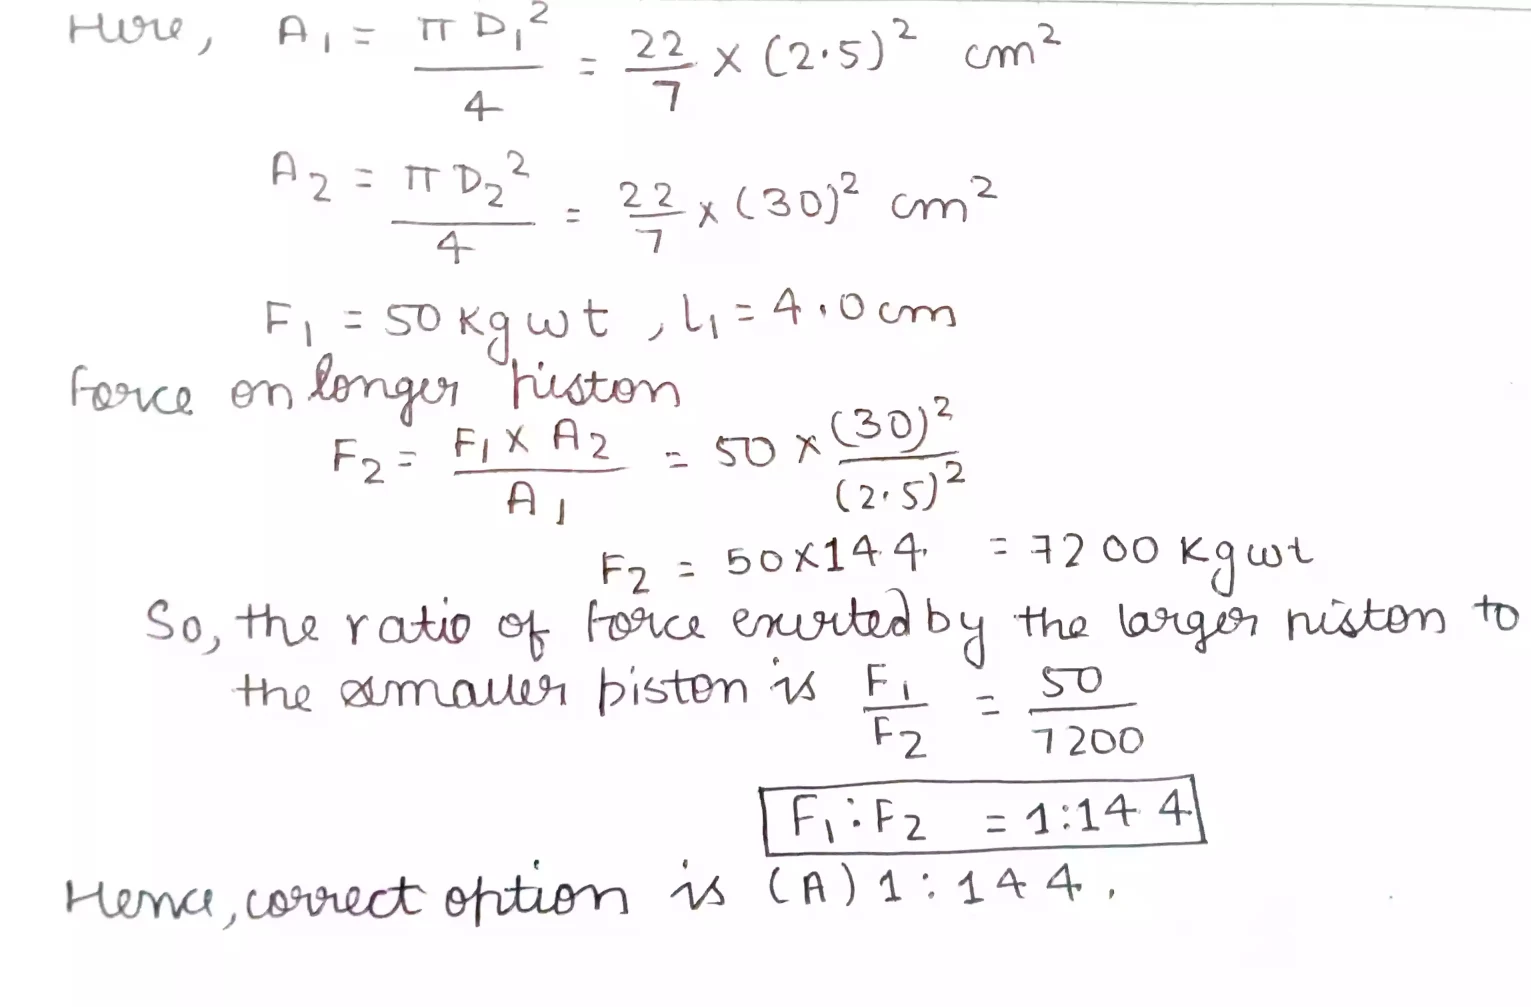 Here, A₁ = πD₁²/4 = 22/7 × (2.5)² cm²
A₂ = πD₂²/4 = 22/7 × (30)² cm²
F₁ = 50 Kg wt , l₁ = 4.0 cm
Force on longer piston
F₂ = F₁ × A₂/A₁ = 50 × (30)²/(2.5)²
F₂ = 50×144 = 7200 Kg wt
So, the ratio of force exerted by the larger piston to
the smaller piston is F₁/F₂ = 50/7200
F₁:F₂ = 1:144
Hence, correct option is (A) 1:144.